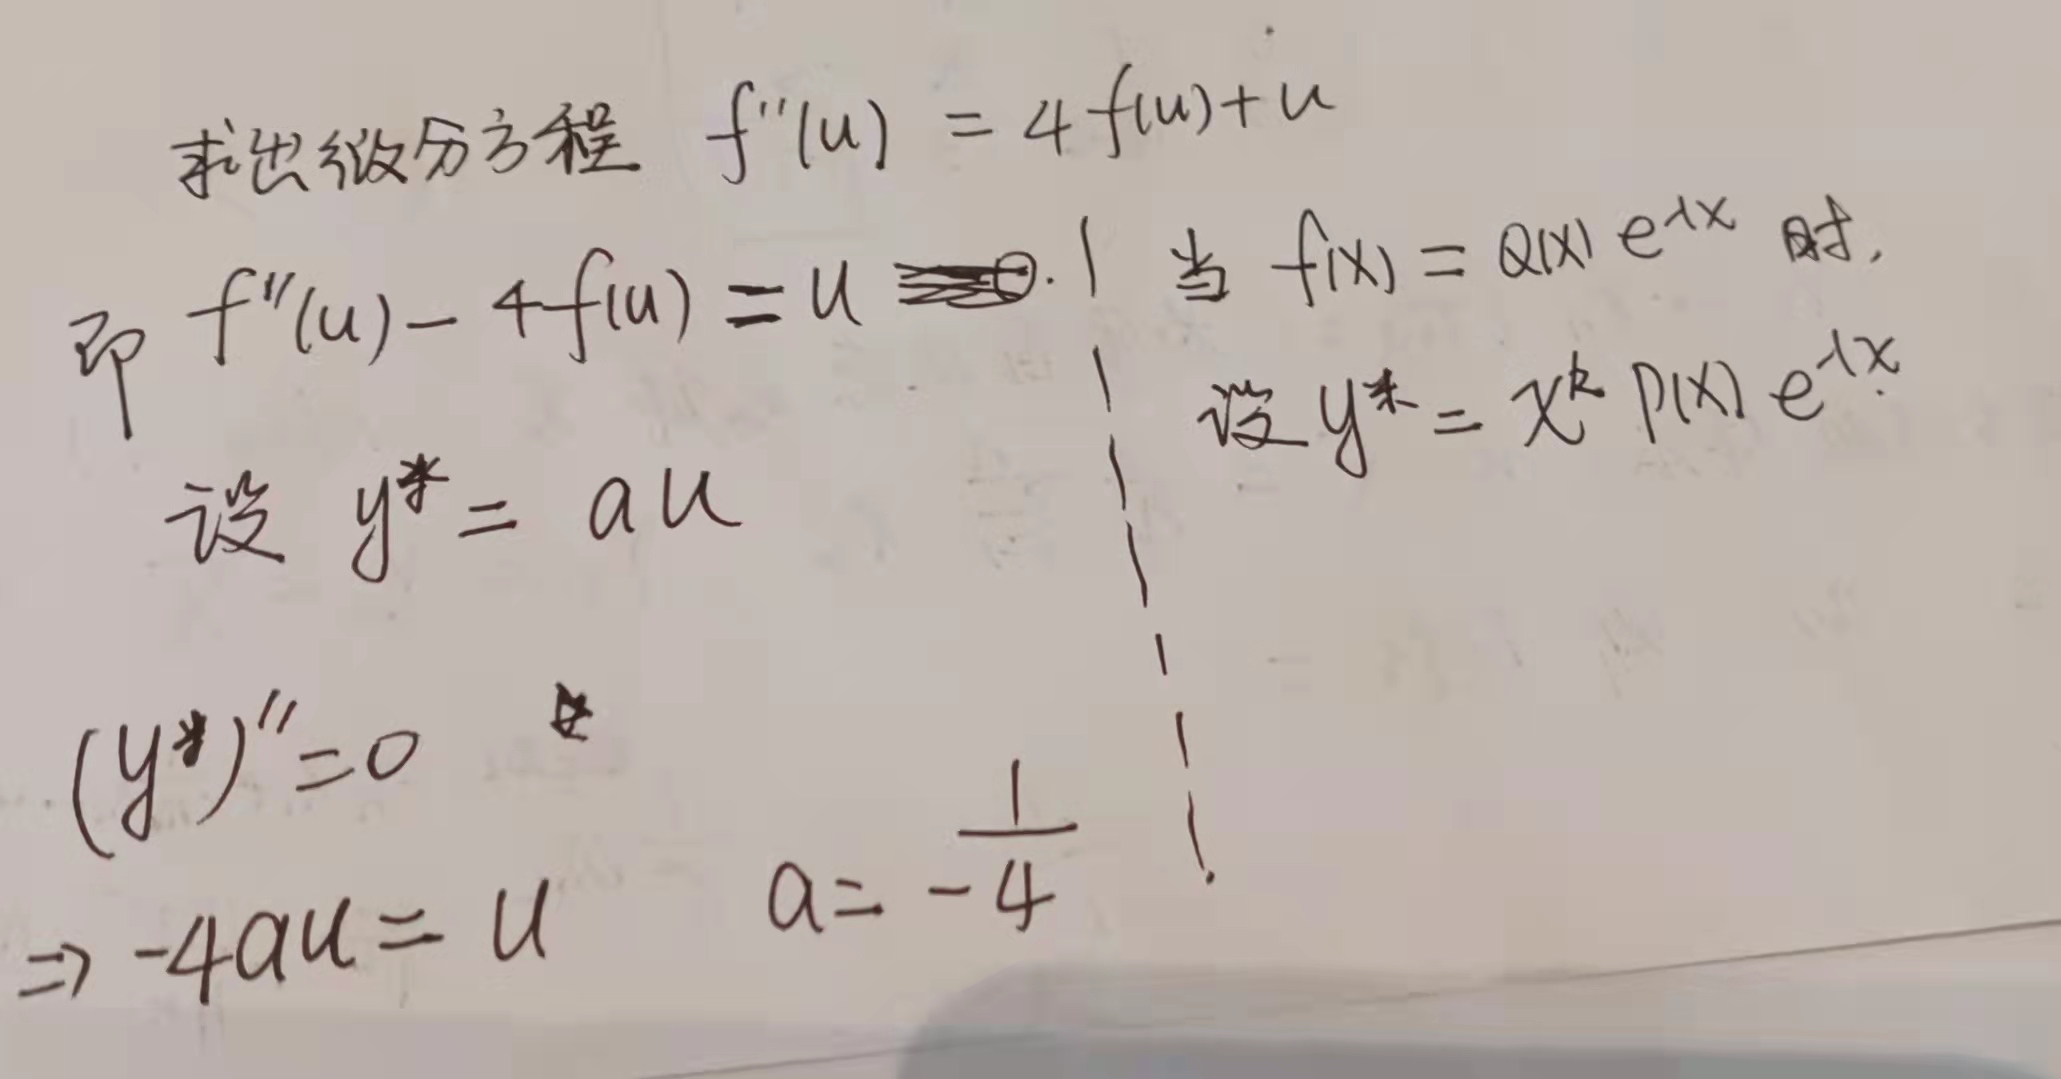 求出微分方程 f''(u) = 4f(u)+u
即 f''(u) - 4f(u) = u
设 y* = au
(y*)'' = 0
⇒ -4au = u a = 1/-4
当 f(x) = Q(x) e^λx 时,
设 y* = x^k P(x) e^λx.